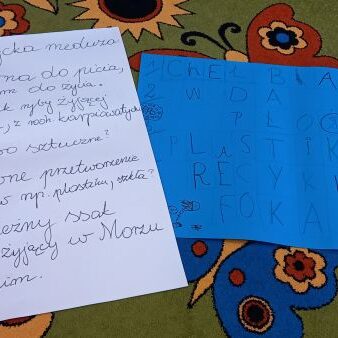 cka meduza
na do picia,
m do życia.
k ryby żyjącej
, z rodz. karpiowatych
o sztuczne?
one przetworzenie
w np. plastiku, szkła?
eżny ssak
żyjący w Morzu
im.
1 CHEŁBIA
2 WODA
PŁOĆ
PLASTIK
RECYK
FOKA